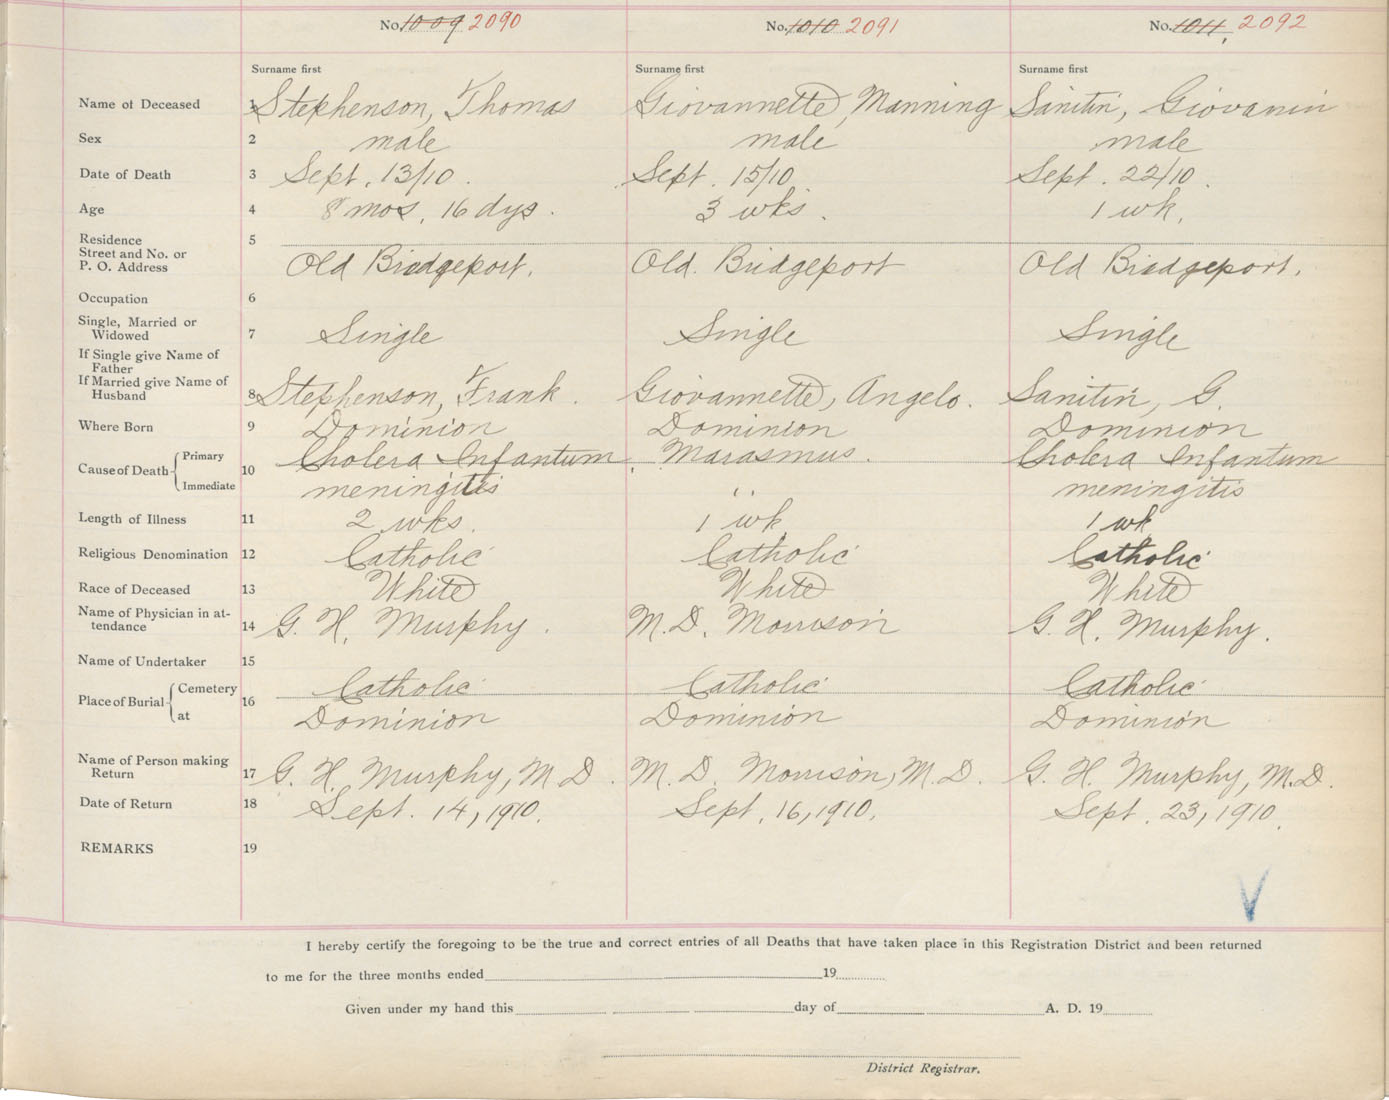 No. 1009 2090 No. 1010 2091 No. 1011 2092
Surname first Surname first Surname first
Name of Deceased 1 Stephenson, Thomas Giovannette, Manning Sanitin, Giovanin
Sex 2 male male male
Date of Death 3 Sept. 13/10. Sept. 15/10 Sept. 22/10.
Age 4 8 mos, 16 dys. 3 wks. 1 wk.
Residence 5
Street and No. or
P. O. Address Old Bridgeport. Old. Bridgeport Old Bridgeport.
Occupation 6
Single, Married or
Widowed 7 Single Single Single
If Single give Name of
Father
If Married give Name of
Husband 8 Stephenson, Frank. Giovannette, Angelo. Sanitin, G.
Where Born 9 Dominion Dominion Dominion
Cause of Death Primary 10 Cholera Infantum Marasmus. Cholera Infantum
Immediate meningitis " meningitis
Length of Illness 11 2 wks. 1 wk 1 wk
Religious Denomination 12 Catholic Catholic Catholic
Race of Deceased 13 White White White
Name of Physician in at-
tendance 14 G. H. Murphy. M. D. Morrison G. H. Murphy.
Name of Undertaker 15
Place of Burial Cemetery 16 Catholic Catholic Catholic
at Dominion Dominion Dominion
Name of Person making
Return 17 G. H. Murphy, M D. M. D. Morrison, M. D. G. H. Murphy, M.D.
Date of Return 18 Sept. 14, 1910. Sept. 16, 1910. Sept. 23, 1910.
REMARKS 19
I hereby certify the foregoing to be the true and correct entries of all Deaths that have taken place in this Registration District and been returned
to me for the three months ended 19
Given under my hand this day of A. D. 19
District Registrar.